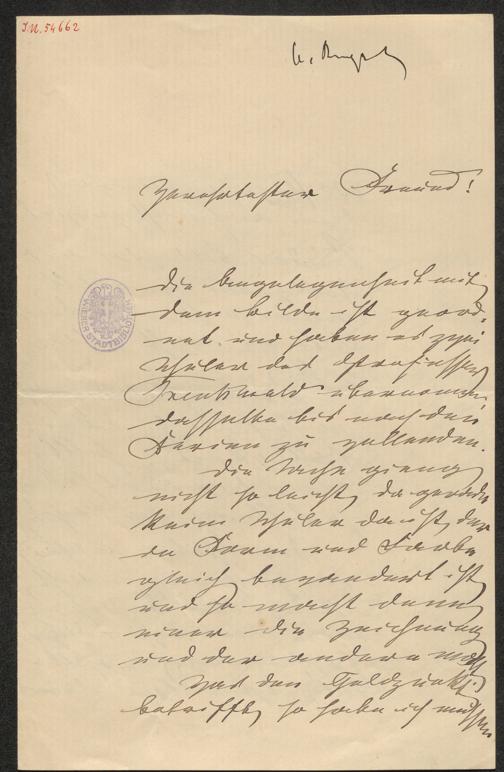 J.N. 54662
Verehrtester Freund!
WIENER STADTBIBLIOTHEK
Die Angelegenheit mit
dem Bilde ist geord-
net und haben es zwei
Schüler des Professor
Trenkwald übernommen
dasselbe bis nach den
Ferien zu vollenden.
Die Sache gieng
nicht so leicht, da gerade
kein Schüler da ist, der
in Form und Farbe
gleich bewandert ist
und so macht denn
einer die Zeichnung
und der andere
Was den Geldpunkt
betrifft, so habe ich müssen